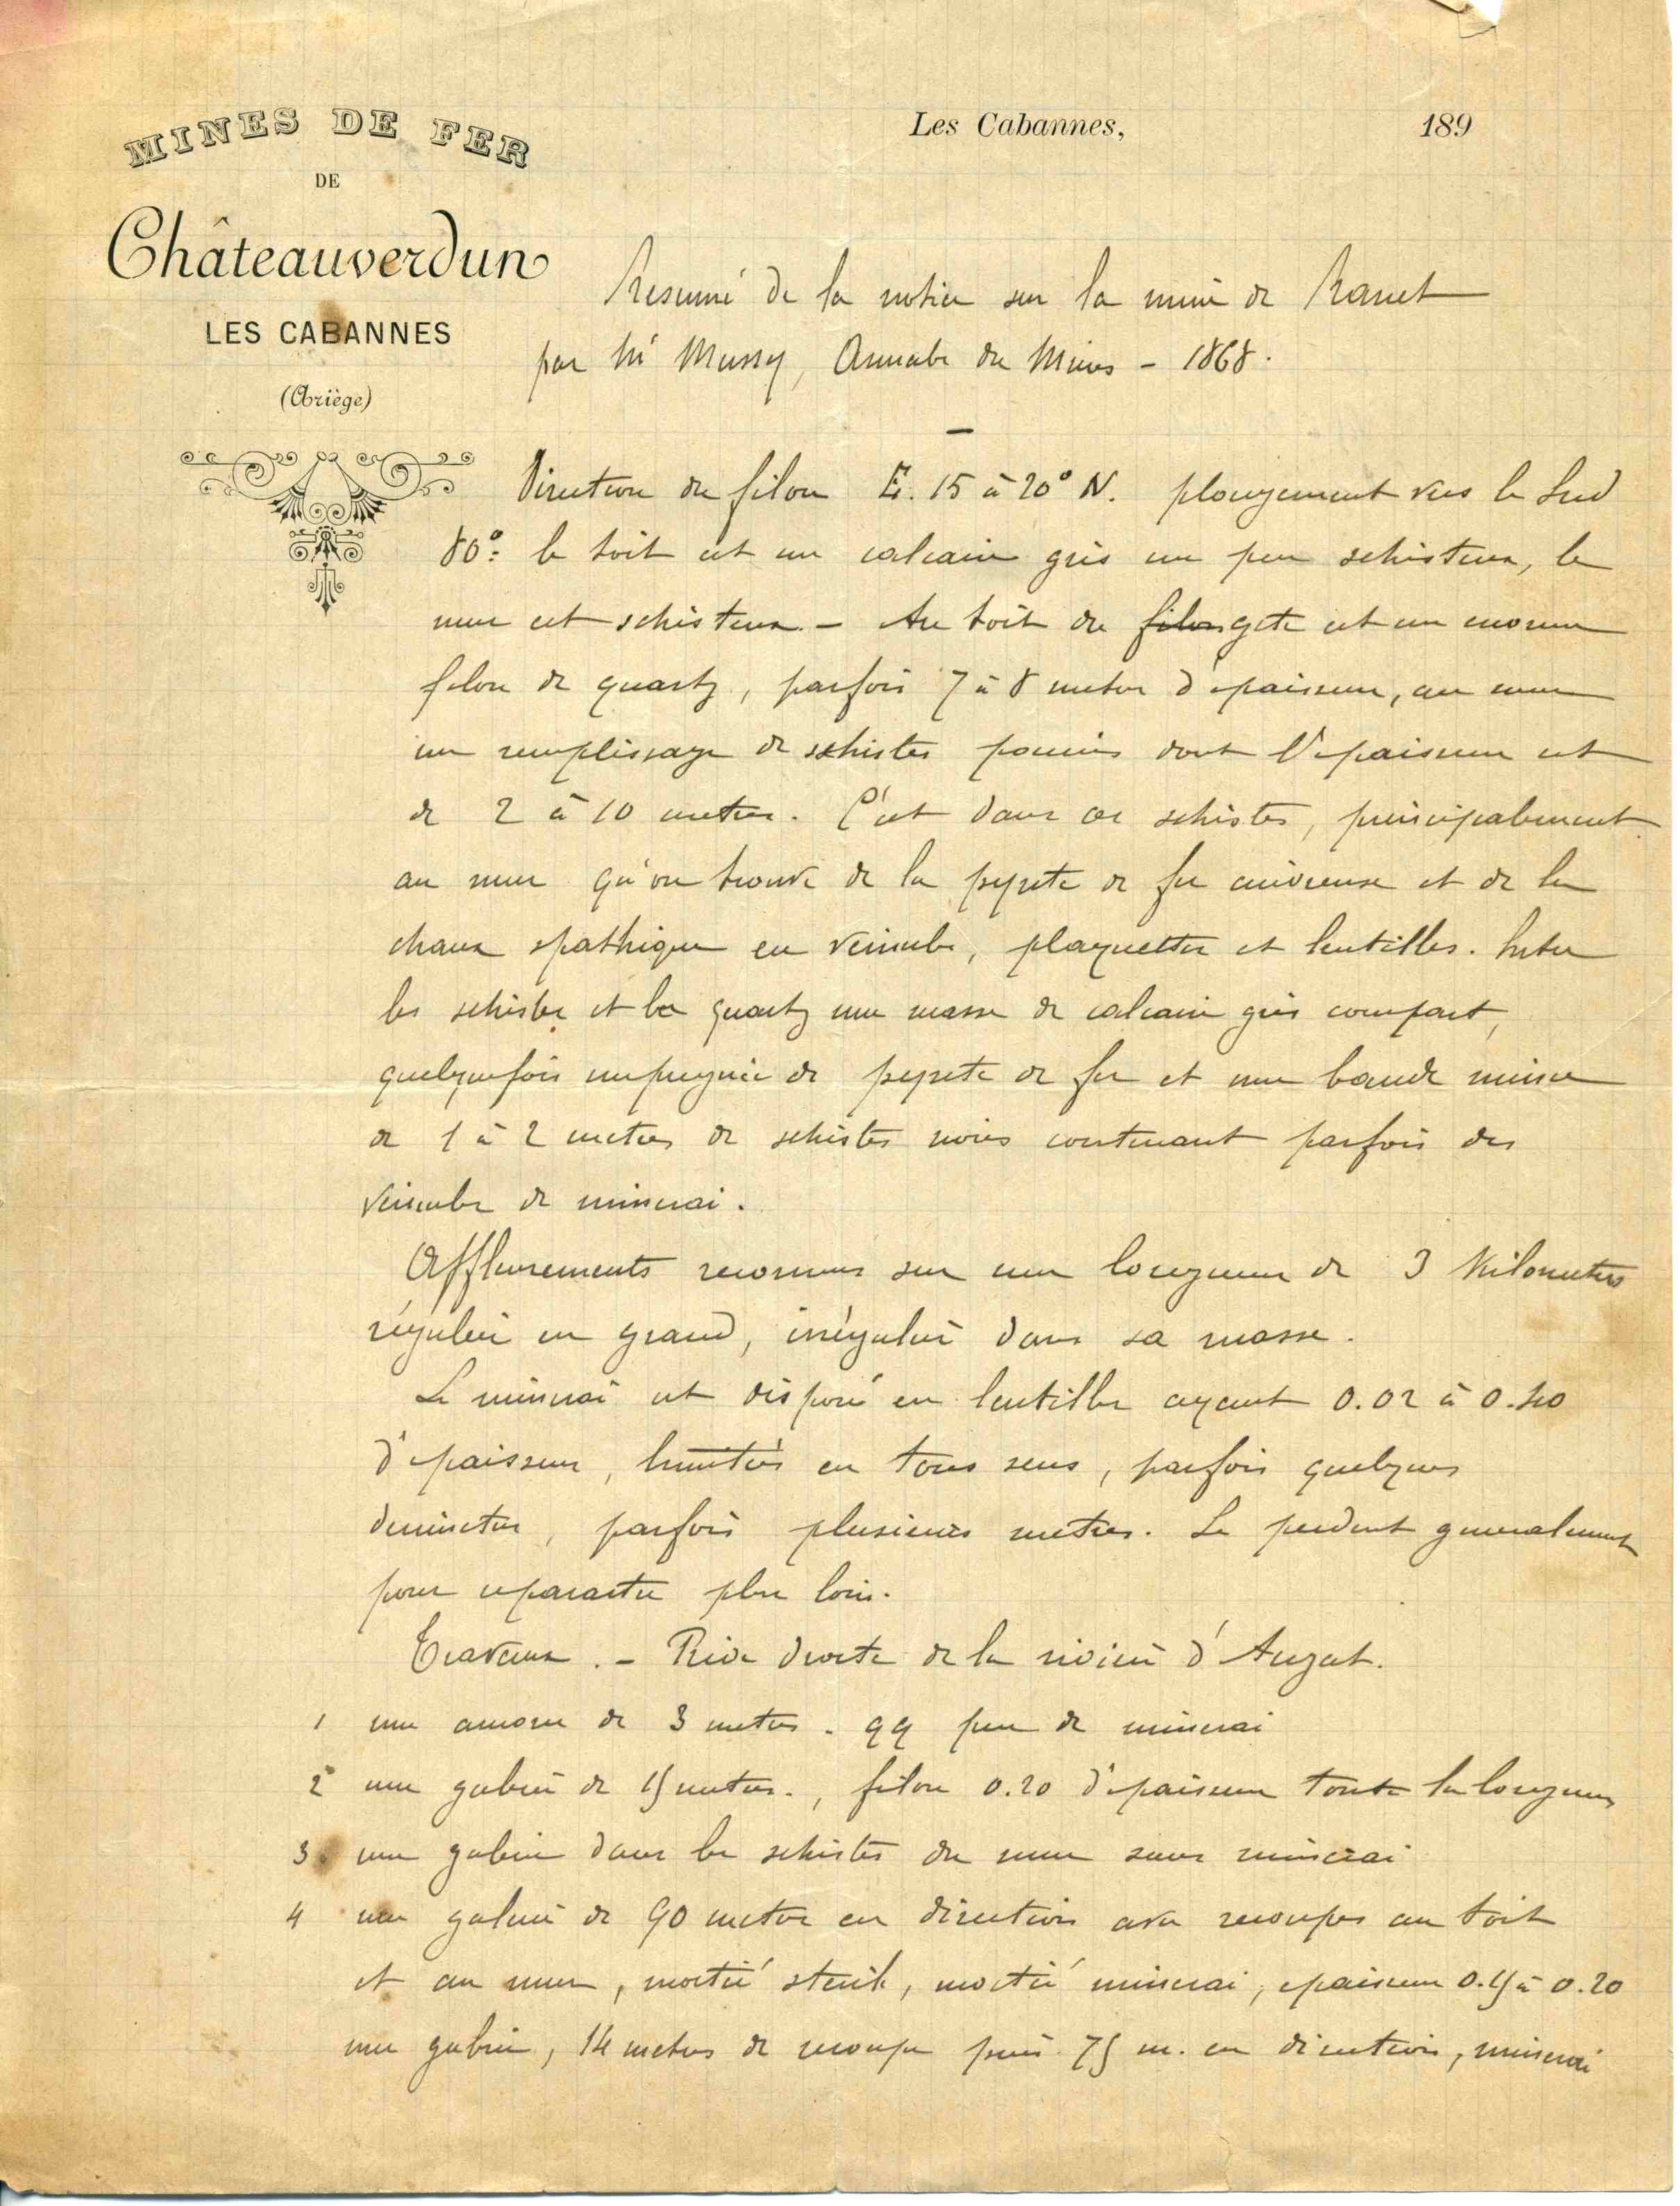 MINES DE FER
DE
Châteauverdun
LES CABANNES
(Ariège)
Les Cabannes, 189
Resumé de la notice sur la mine de Rancet
par Mr Mussy, Annales des Mines - 1868.
Direction du filon E. 15 à 20° N. plongement vers le Sud
80°: le toit est un calcaire gris un peu schisteux, le
mur est schisteux. - Au toit du filon gite est un enorme
filon de quartz, parfois 7 à 8 metres d'epaisseur, au mur
un remplissage de schistes pourris dont l'epaisseur est
de 2 à 10 metres. C'est dans ces schistes, principalement
au mur qu'on trouve de la pyrite de fer cuivreuse et de la
chaux spathique en veinules, plaquettes et lentilles. Entre
les schistes et le quartz une masse de calcaire gris compact,
quelquefois impregnée de pyrite de fer et une bande mince
de 1 à 2 metres de schistes noirs contenant parfois des
veinules de minerai.
Affleurements reconnus sur une longueur de 3 Kilometres
régulier en grand, irrégulier dans sa masse.
Le minerai est disposé en lentilles ayant 0.02 à 0.40
d'epaisseur, limités en tous sens, parfois quelques
decimetres, parfois plusieurs metres. Se perdent generalement
pour reparaitre plus loin.
Travaux. - Rive droite de la rivière d'Auzat.
1 une amorce de 3 metres - qq peu de minerai
2 une galerie de 15 metres., filon 0.20 d'epaisseur toute la longueur
3 une galerie dans les schistes du mur sans minerai
4 une galerie de 90 metres en direction avec recoupes au toit
et au mur, moitié sterile, moitié minerai, epaisseur 0.15 à 0.20
une galerie, 14 metres de recoupe puis 75 m. en direction, minerai